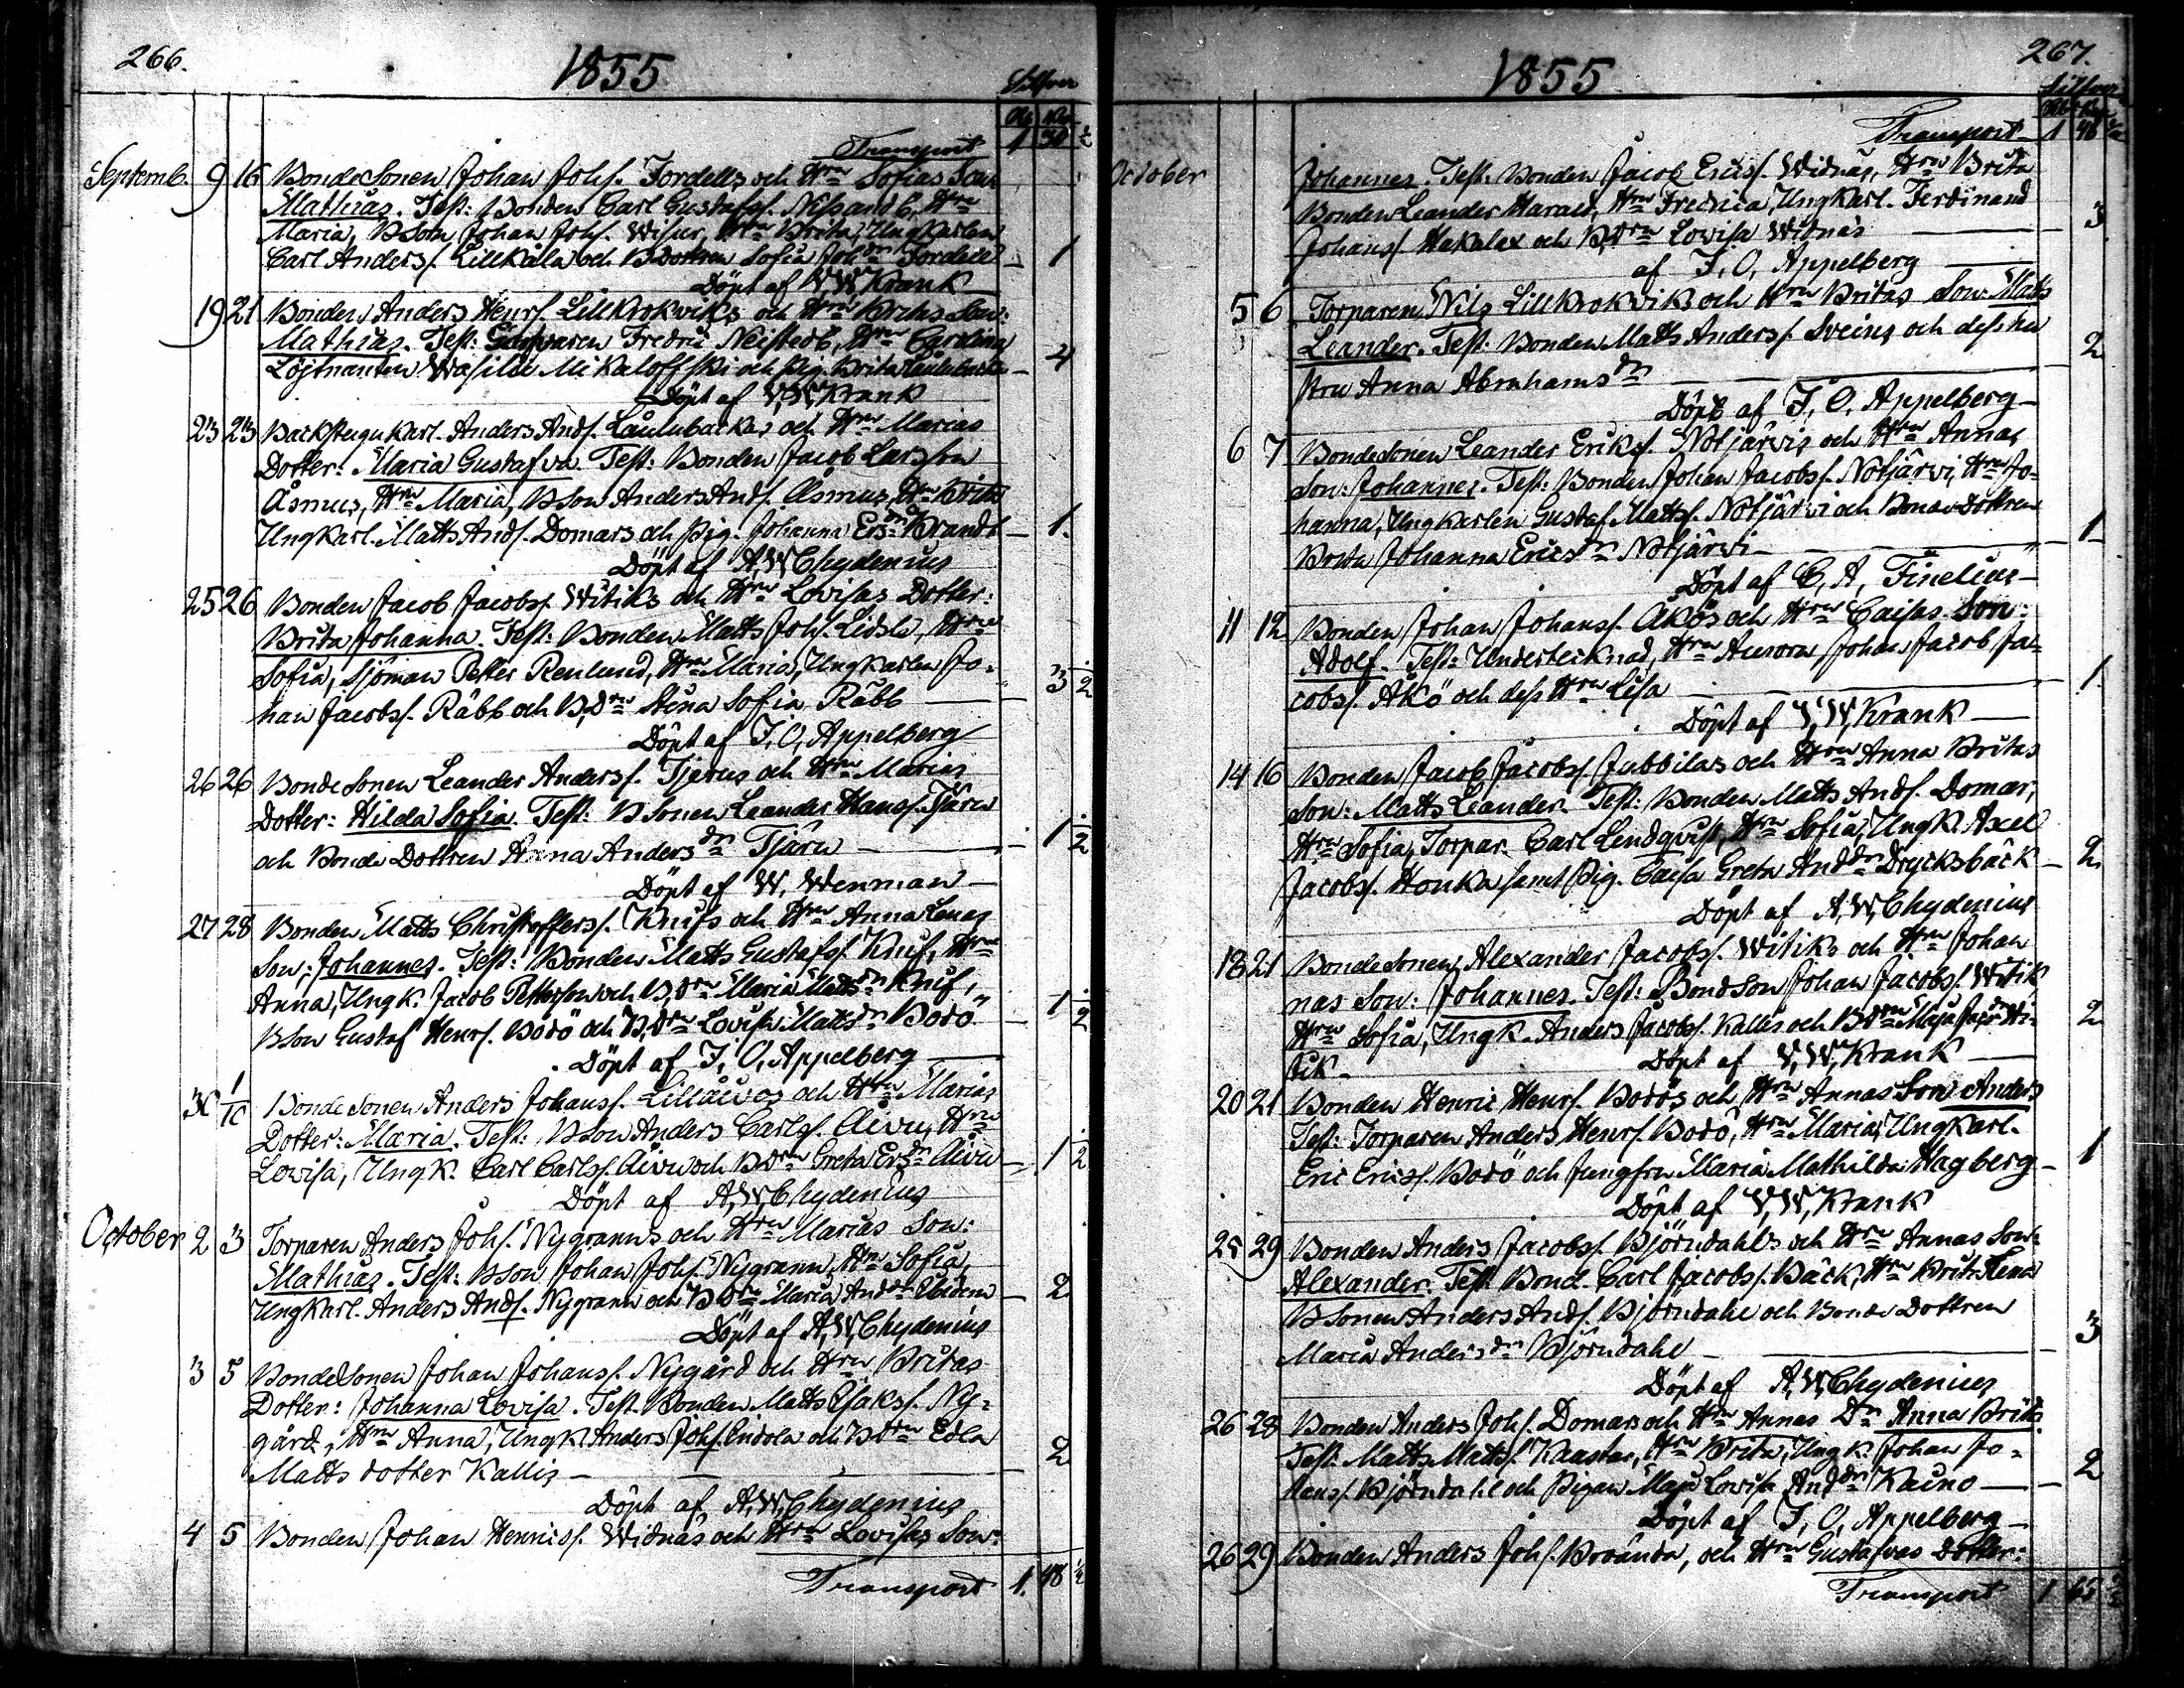 266.
1855
Silfver
Transport 1 30 ½
Septemb. 9 16 BondeSonen Johan Johs. Tordells och Hru Sofias Son
Mathias. Test: Bonden Carl Gustafs. Hru
Maria, BSon Johan Johs. Wisur, Hru Brita, Ungkarlen
Carl Anders. Lillkåla och BDottren Sofia Johdr Tordell — 1
Döpt af W,W,Krank
19 21 Bonden Anders Henrs. Lillkrokviks och Hru Britas Son:
Mathias. Test: Fredric Neistedt, Hru Carolina
Löjtnanten Wasilii Mikaloffski och Pig. Brita — 4
Döpt af W,W,Krank
23 23 Backstugukarl. Anders Ands. Låulubackas och Hru Marias
Dotter: Maria Gustafva. Test: Bonden Jacob Larsson
Åsmus, Hru Maria, BSon Anders Ands. Åsmus, Hru Brita
Ungkarl. Matts Ands. Domars och Pig. Johanna Ersdr Brandt — 1.
Döpt af A,W,Chydenius
25 26 Bonden Jacob Jacobs. Witiks och Hru Lovisas Dotter:
Brita Johanna. Test: Bonden Matts Johs. Lidsle, Hru
Sofia, Sjöman Petter Renlund, Hru Maria, Ungkarlen Jo-
han Jacobs. Räbb och B,Drn Stina Sofia Räbb — 3 ½
Döpt af F,O,Appelberg
26 26 BondeSonen Leander Anders. Tjerus och Hru Marias
Dotter: Hilda Sofia. Test: BSonen Leander Hans. Tjäru
och Bonde Dottren Anna Andersdr Tjäru — 1 ½
Döpt af W. Wenman —
27 28 Bonden Matts Christoffers. Knifs och Hru Anna Lenas
Son: Johannes. Test: Bonden Matts Gustafs. Knif, Hru
Anna, Ungk. Jacob Petterson och B,Drn Maria Mattsdr Knif,
BSon Gustaf Henrs. Bodö och B,Drn Lovisa Mattsdr Bodö — 1 ½
Döpt af F, O, Appelberg —
30 1/10 BondeSonen Anders Johans. Lillåivos och Hru Marias
Dotter: Maria. Test: BSon Anders Carls. Åivu, Hru
Lovisa, Ungk. Carl Carls. Åivu och BDrn Greta Ersdr Åivu — 1 ½
Döpt af A,W,Chydenius
October 2 3 Torparen Anders Johs. Nygranns och Hru Marias Son:
Mathias. Test: BSon Johan Johs. Nygrann, Hru Sofia,
Ungkarl. Anders Ands. Nygrann och BDrn Maria Anddr Ibidem — 2
Döpt af A,W,Chydenius
3 5 BondeSonen Johan Johans. Nygård och Hru Britas
Dotter: Johanna Lovisa. Test. Bonden Matts Isaks. Ny-
gård, Hru Anna, Ungk. Anders Johs. Eudola och BDrn Edla
Matts dotter Kallis — 2
Döpt af A,W,Chydenius
4 5 Bonden Johan Henrics. Widnäs och Hru Lovisas Son:
Transport 1. 48 ½
267.
1855
Silfver
Transport 1 48 ½
October Johannes. Test: Bonden Jacob Erics. Widnäs, Hru Brita
Bonden Leander Harald, Hru Fredrica, Ungkarl. Ferdinand
Johans. Hakalax och B,Drn Lovisa Widnäs — 3
af F, O, Appelberg —
5 6 Torparen Nils Lillkrokviks och Hru Britas Son: Matts
Leander. Test: Bonden Matts Anders. Sveins och dess hu
stru Anna Abrahamsdr — 2
Döpt af F, O, Appelberg —
6 7 BondeSonen Leander Eriks. Notjärvis och Hru Annas
Son: Johannes. Test: Bonden Johan Jacobs. Notjärvi, Hru Jo-
hanna, Ungkarlen Gustaf Matts. Notjärvi och BondeDottren
Brita Johanna Ericsdr Notjärvi — 1
Döpt af C, A, Finelius —
11 12 Bonden Johan Johans. Åkös och Hru Caisas Son:
Adolf. Test: Undertecknad, Hru Aurora, Johan Jacob Ja-
cobs. Åkö och dess Hru Lisa — 1.
Döpt af W,W,Krank —
14 16 Bonden Jacob Jacobs. Jubbilas och Hru Anna Britas
Son: Matts Leander. Test: Bonden Matts Ands. Domar,
Hru Sofia, Torpar. Carl Lindqvist, Hru Sofia, Ungk. Axel
Jacobs. Honka samt Pig. Caisa Greta Anddr Drycksbäck — 2
Döpt af A,W,Chydenius
18 21 BondeSonen Alexander Jacobs. Witiks och Hru Johan
nas Son: Johannes. Test: BondSon Johan Jacobs. Witik
Hru Sofia, Ungk. Anders Jacobs. Kallis och BDrn Maja Wi- 2
tik — Döpt af W,W,Krank —
20 21 Bonden Henric Henrs. Bodös och Hru Annas Son Anders
Test: Torparen Anders Henrs. Bodö, Hru Maria, Ungkarl.
Eric Erics. Bodö och Jungfru Maria Mathilda Hagberg — 1
Döpt af W,W,Krank
25 29 Bonden Anders Jacobs. Björndahls och Hru Annas Son:
Alexander. Test. Bond. Carl Jacobs. Bäck, Hru Brita Lena
BSonen Anders Ands. Björndahl och Bonde Dottren
Maria Andersdr Björndahl — 3
Döpt af A,W,Chydenius
26 28 Bonden Anders Johs. Domars och Hru Annas Dr Anna Brita
Test: Matts Matts. Kaustar, Hru Brita, Ungk. Johan Jo-
hans. Björndahl och Pigan Maja Lovisa Anddr Kaino — 2
Döpt af F, O, Appelberg —
26 29 Bonden Anders Johs. Broända, och Hru Gustafvas Dotter:
Transport 1 65 ½